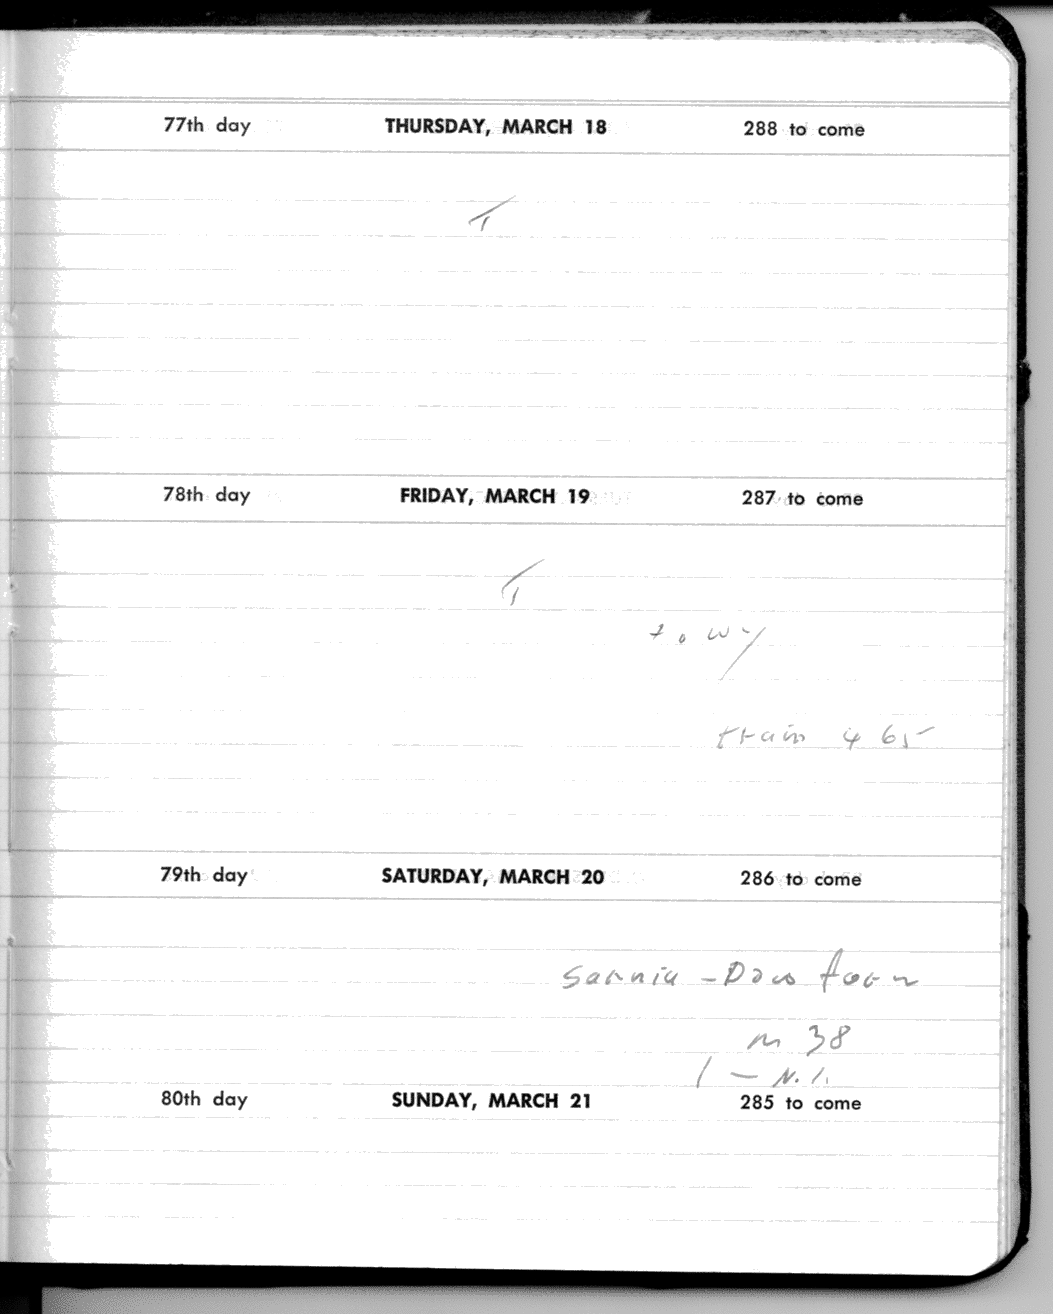 77th day THURSDAY, MARCH 18 288 to come
T
78th day FRIDAY, MARCH 19 287 to come
T
to wy
train 465
79th day SATURDAY, MARCH 20 286 to come
Sarnia - Dow
m 38
1 - N.
80th day SUNDAY, MARCH 21 285 to come